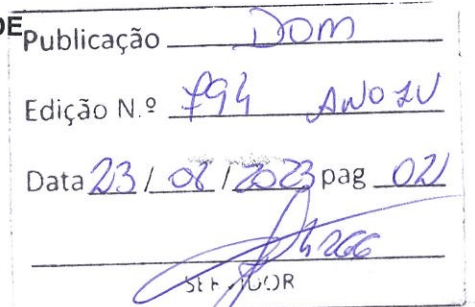 DE
Publicação DOM
Edição N.º 794 ANO IV
Data 23/08/2023 pag 02
4266
SERVIDOR